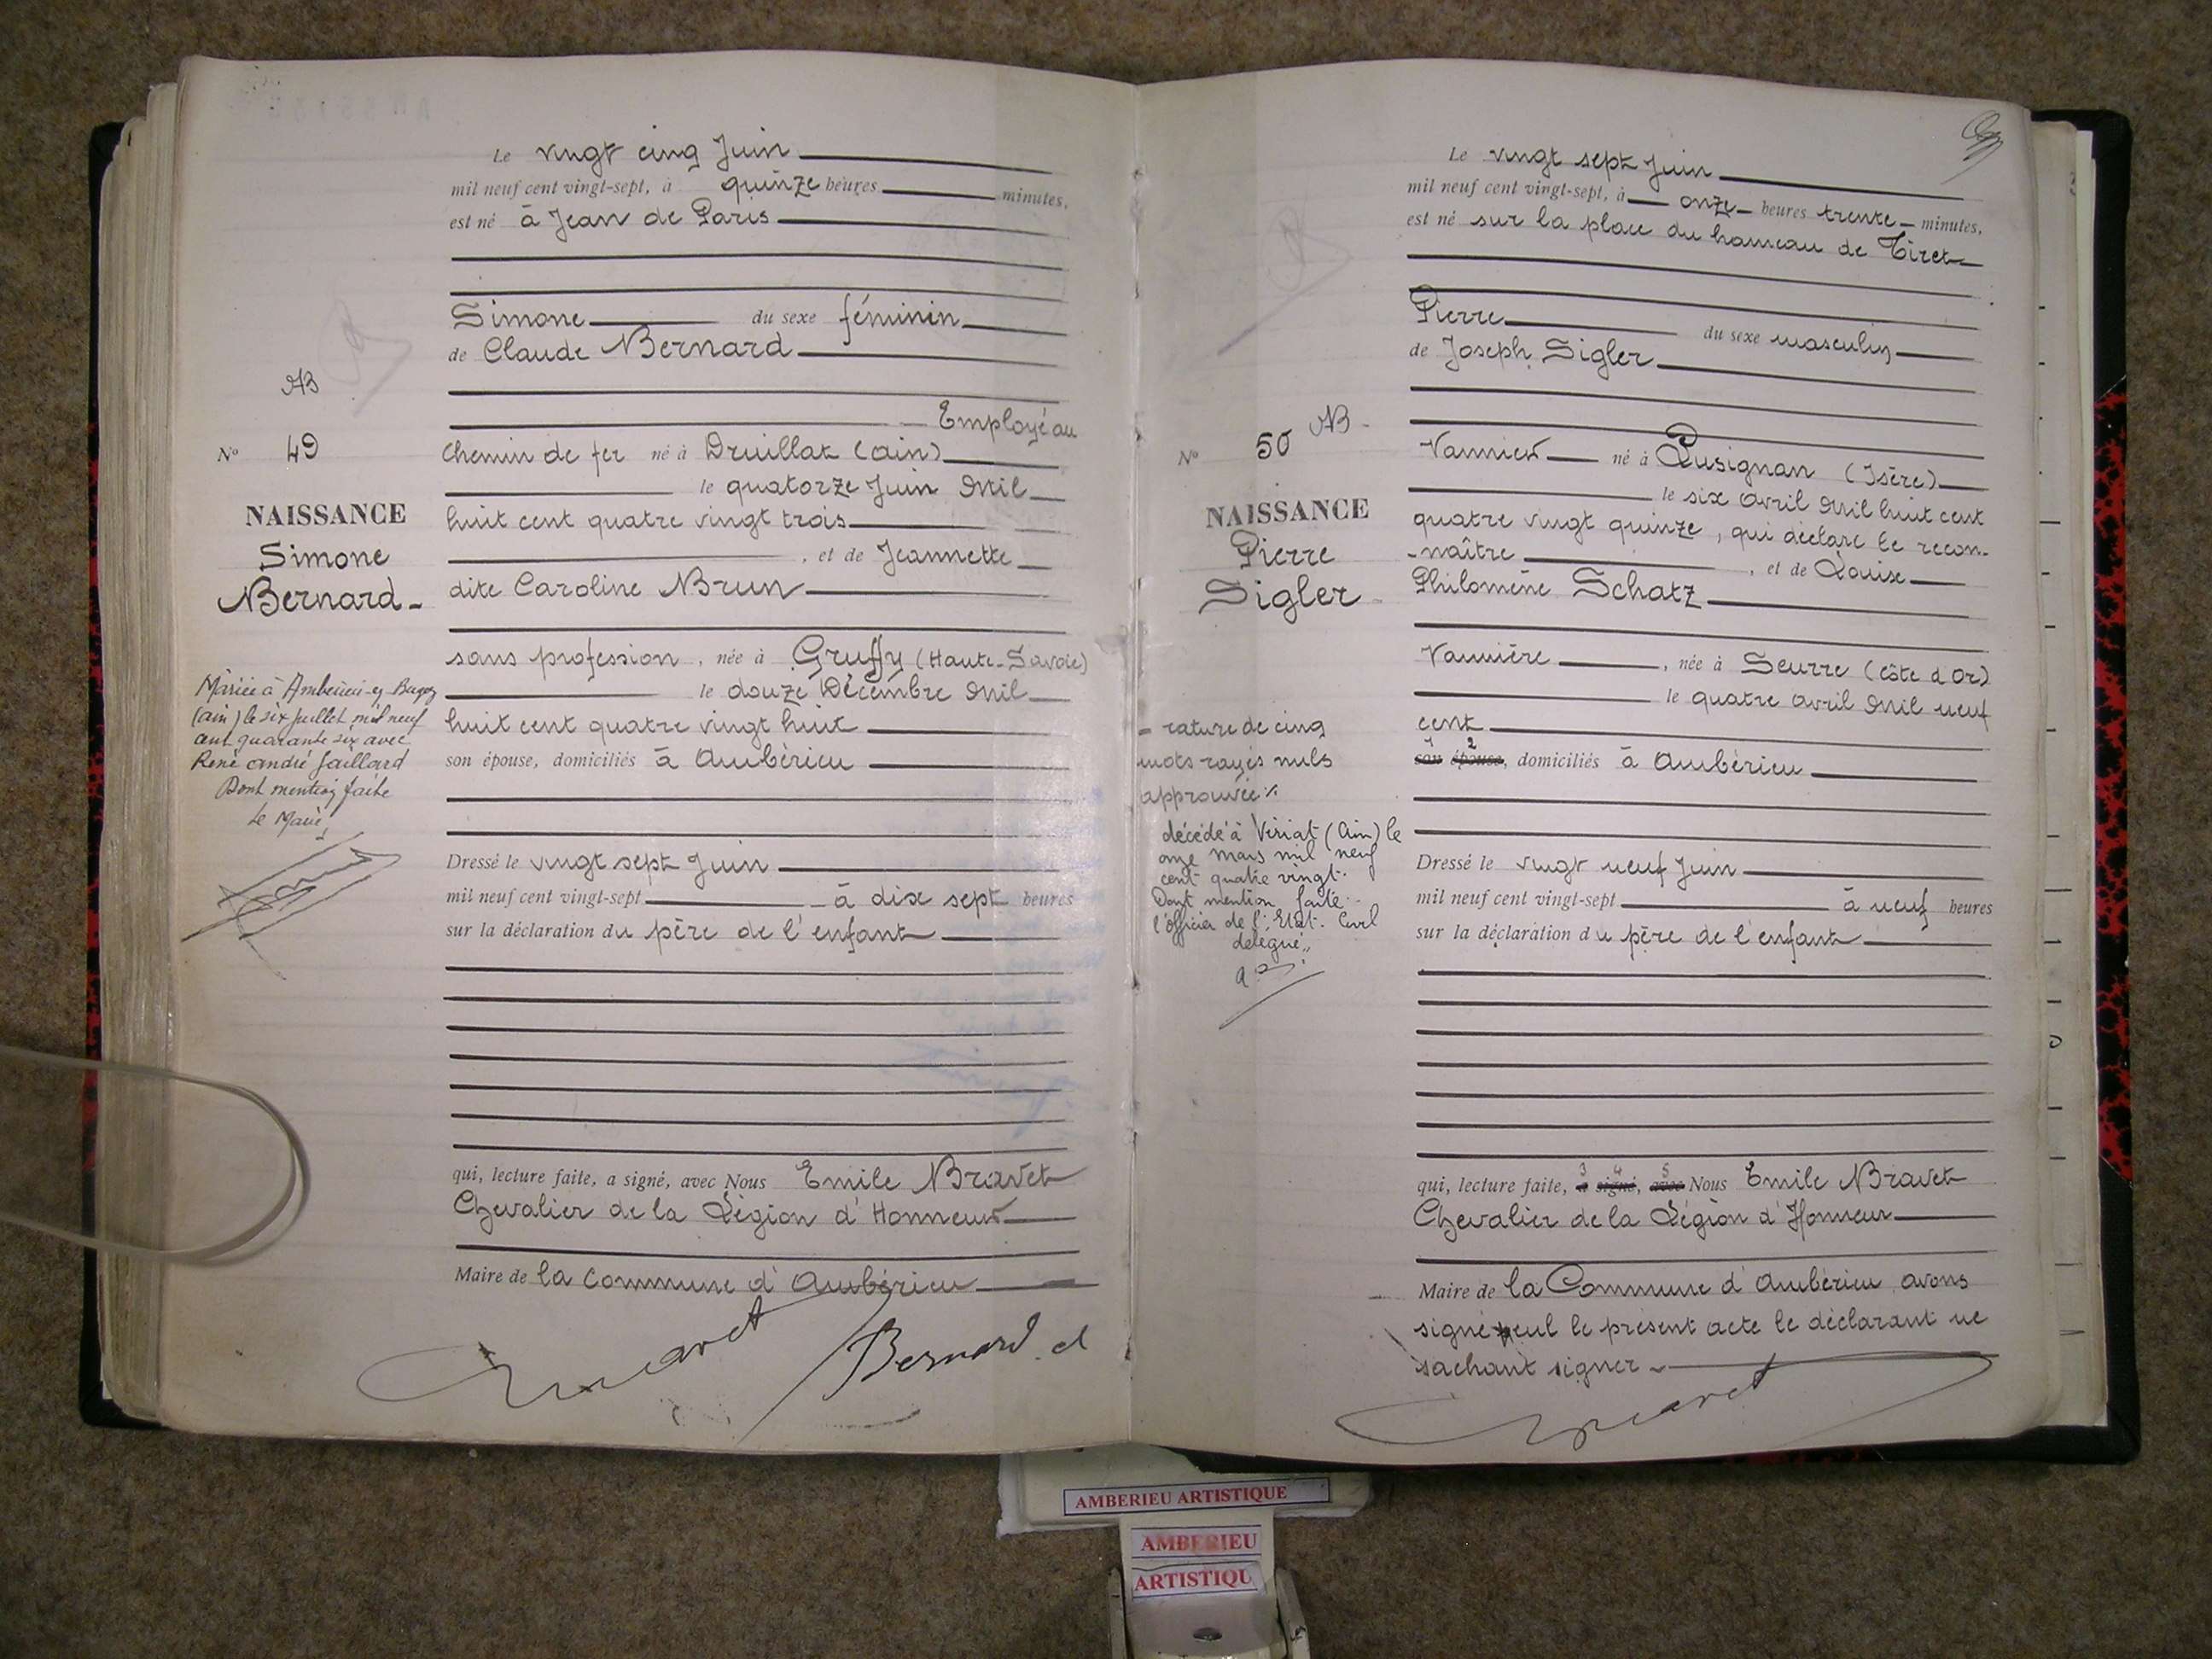 Le vingt cinq Juin
mil neuf cent vingt-sept, à quinze heures minutes,
est né à Jean de Paris
Simone du sexe féminin
de Claude Bernard
AB
Employé au
N° 49
chemin de fer né à Druillat (ain)
le quatorze Juin Mil
NAISSANCE
huit cent quatre vingt trois
Simone
, et de Jeannette
Bernard
dite Caroline Brun
sans profession, née à Gruffy (Haute-Savoie)
le douze Décembre Mil
huit cent quatre vingt huit
son épouse, domiciliés à Ambérieu
Mariée à Ambérieu-en-Bugey
(ain) le six juillet mil neuf
cent quarante six avec
René andré Jaillard
Dont mention faite
Le Maire,
Dressé le vingt sept Juin
mil neuf cent vingt-sept à dix sept heures
sur la déclaration du père de l'enfant
qui, lecture faite, a signé, avec Nous Emile Bravet
Chevalier de la Légion d'Honneur
Maire de la Commune d'Ambérieu
Bernard. cl
Le vingt sept Juin
mil neuf cent vingt-sept, à onze heures trente minutes,
est né sur la place du hameau de Tiret
Pierre du sexe masculin
de Joseph Sigler
AB
N° 50
Vannier né à Pusignan (Isère)
le six avril Mil huit cent
NAISSANCE
quatre vingt quinze, qui déclare le recon-
Pierre
-naître , et de Louise
Sigler
Philomène Schatz
Vannière , née à Seurre (Côte d'Or)
le quatre avril Mil neuf
cent
1 2
son épouse, domiciliés à Ambérieu
- rature de cinq
mots rayés nuls
approuvée
décédé à Viriat (Ain) le
onze mars mil neuf
cent quatre vingt.
Dont mention faite
l'officier de l'Etat. Civil
délégué,,
Dressé le vingt neuf Juin
mil neuf cent vingt-sept à neuf heures
sur la déclaration du père de l'enfant
3 4 5
qui, lecture faite, a signé, avec Nous Emile Bravet
Chevalier de la Légion d'Honneur
Maire de la Commune d'Ambérieu avons
signé seul le présent acte le déclarant ne
sachant signer
AMBERIEU ARTISTIQUE
AMBERIEU
ARTISTIQU